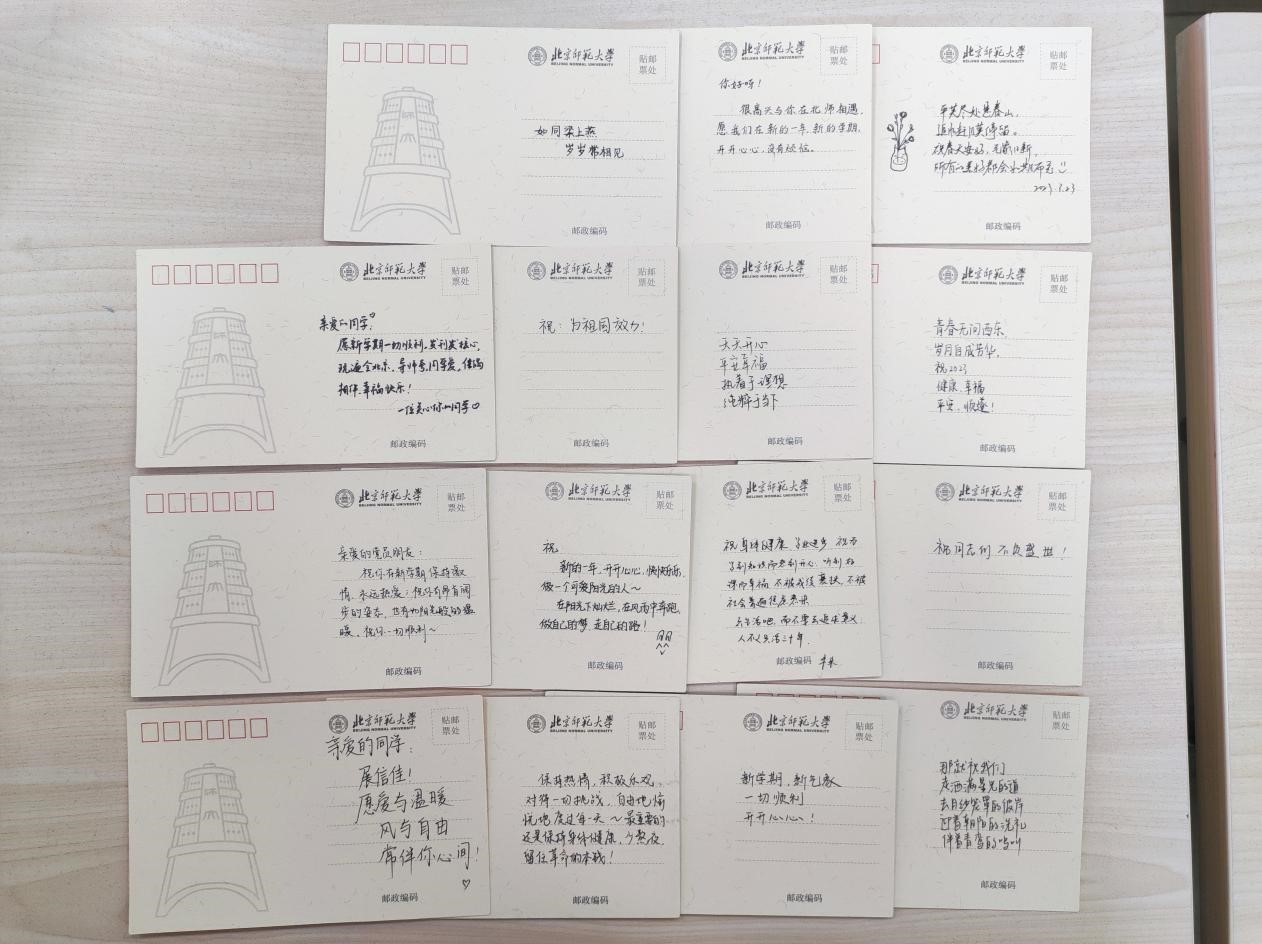 北京师范大学
BEIJING NORMAL UNIVERSITY
贴邮
票处
如同梁上燕
岁岁常相见
邮政编码
北京师范大学
BEIJING NORMAL UNIVERSITY
贴邮
票处
你好呀！
很高兴与你在北师相遇，
愿我们在新的一年，新的学期，
开开心心，没有烦恼。
邮政编码
北京师范大学
BEIJING NORMAL UNIVERSITY
贴邮
票处
平芜尽处是春山，
停留。
春天安好，
所有的美好都会如期而至
2023.3.23
北京师范大学
BEIJING NORMAL UNIVERSITY
贴邮
票处
亲爱的同学：
愿新学期一切顺利，
玩遍全北京，导师亲，同学爱，
相伴，幸福快乐！
一位关心你的同学
邮政编码
北京师范大学
BEIJING NORMAL UNIVERSITY
贴邮
票处
祝：为祖国效力！
邮政编码
北京师范大学
BEIJING NORMAL UNIVERSITY
贴邮
票处
天天开心
平安幸福
执着于理想
纯粹于当下
邮政编码
北京师范大学
BEIJING NORMAL UNIVERSITY
贴邮
票处
青春无问西东，
岁月自成芳华，
祝2023
健康、幸福
平安、顺遂！
邮政编码
北京师范大学
BEIJING NORMAL UNIVERSITY
贴邮
票处
亲爱的党员朋友：
祝你在新学期保持激
情，永远热爱；祝你有
步的姿态，也有如阳光般的温
暖，祝你一切顺利～
邮政编码
北京师范大学
BEIJING NORMAL UNIVERSITY
贴邮
票处
祝
新的一年，开开心心，快快乐乐，
做一个可爱阳光的人～
在阳光下灿烂，在风雨中奔跑，
做自己的梦，走自己的路！
邮政编码
北京师范大学
BEIJING NORMAL UNIVERSITY
贴邮
票处
祝身体健康，学业进步，祝为
学到知识而感到开心，听到好
课而幸福，不被成绩裹挟，不被
社会普遍焦虑
去生活吧，而不要去追求意义
邮政编码
北京师范大学
BEIJING NORMAL UNIVERSITY
贴邮
票处
祝同志们不负盛世！
邮政编码
北京师范大学
BEIJING NORMAL UNIVERSITY
贴邮
票处
亲爱的同学：
展信佳！
愿爱与温暖
风与自由
常伴你心间！
邮政编码
北京师范大学
BEIJING NORMAL UNIVERSITY
贴邮
票处
保持热情，积极乐观，
对待一切挑战，自由地愉
悦地度过每一天～最重要的
还是保持身体健康，少熬夜，
留住革命的本钱！
邮政编码
北京师范大学
BEIJING NORMAL UNIVERSITY
贴邮
票处
新学期，新气象
一切顺利
开开心心！
邮政编码
北京师范大学
BEIJING NORMAL UNIVERSITY
贴邮
票处
那就祝我们
走洒满星光的道
去月纱笼罩的彼岸
迎着朝阳的洗礼
伴着青鸾的鸣叫
邮政编码